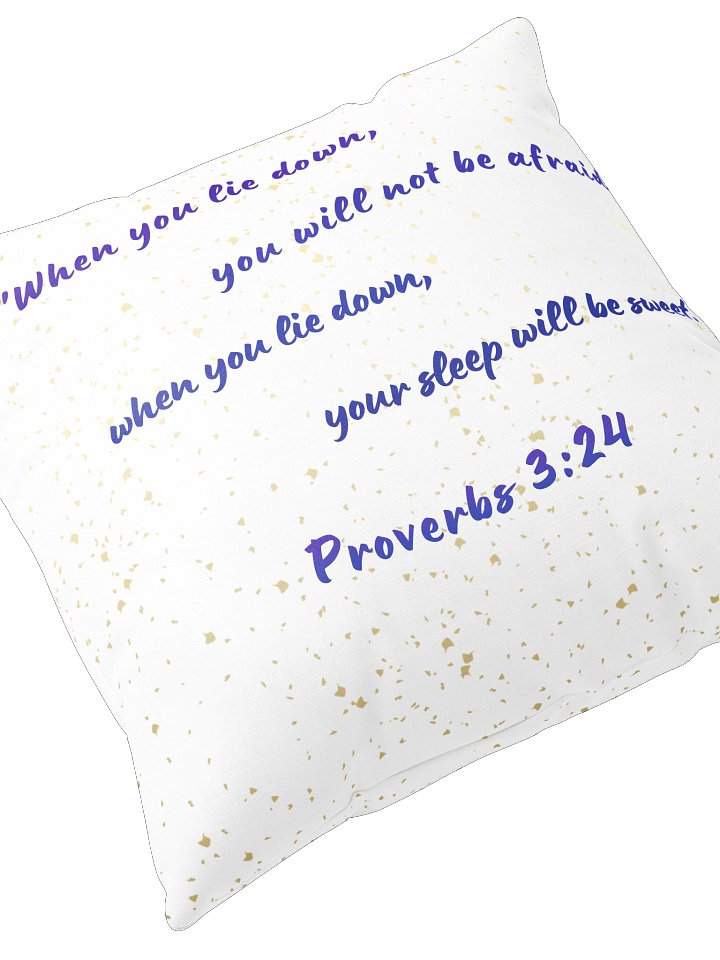 "When you lie down,
you will not be afraid
when you lie down,
your sleep will be sweet.
Proverbs 3:24